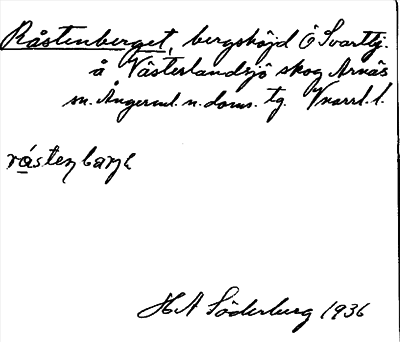 Råstenberget, bergshöjd Ö Svarttj.
å Västerlandsjö skog Arnäs
sn. Ångerml. n. doms. tg. Vnorrl. l.
råstenbarjə
H A Söderburg 1936